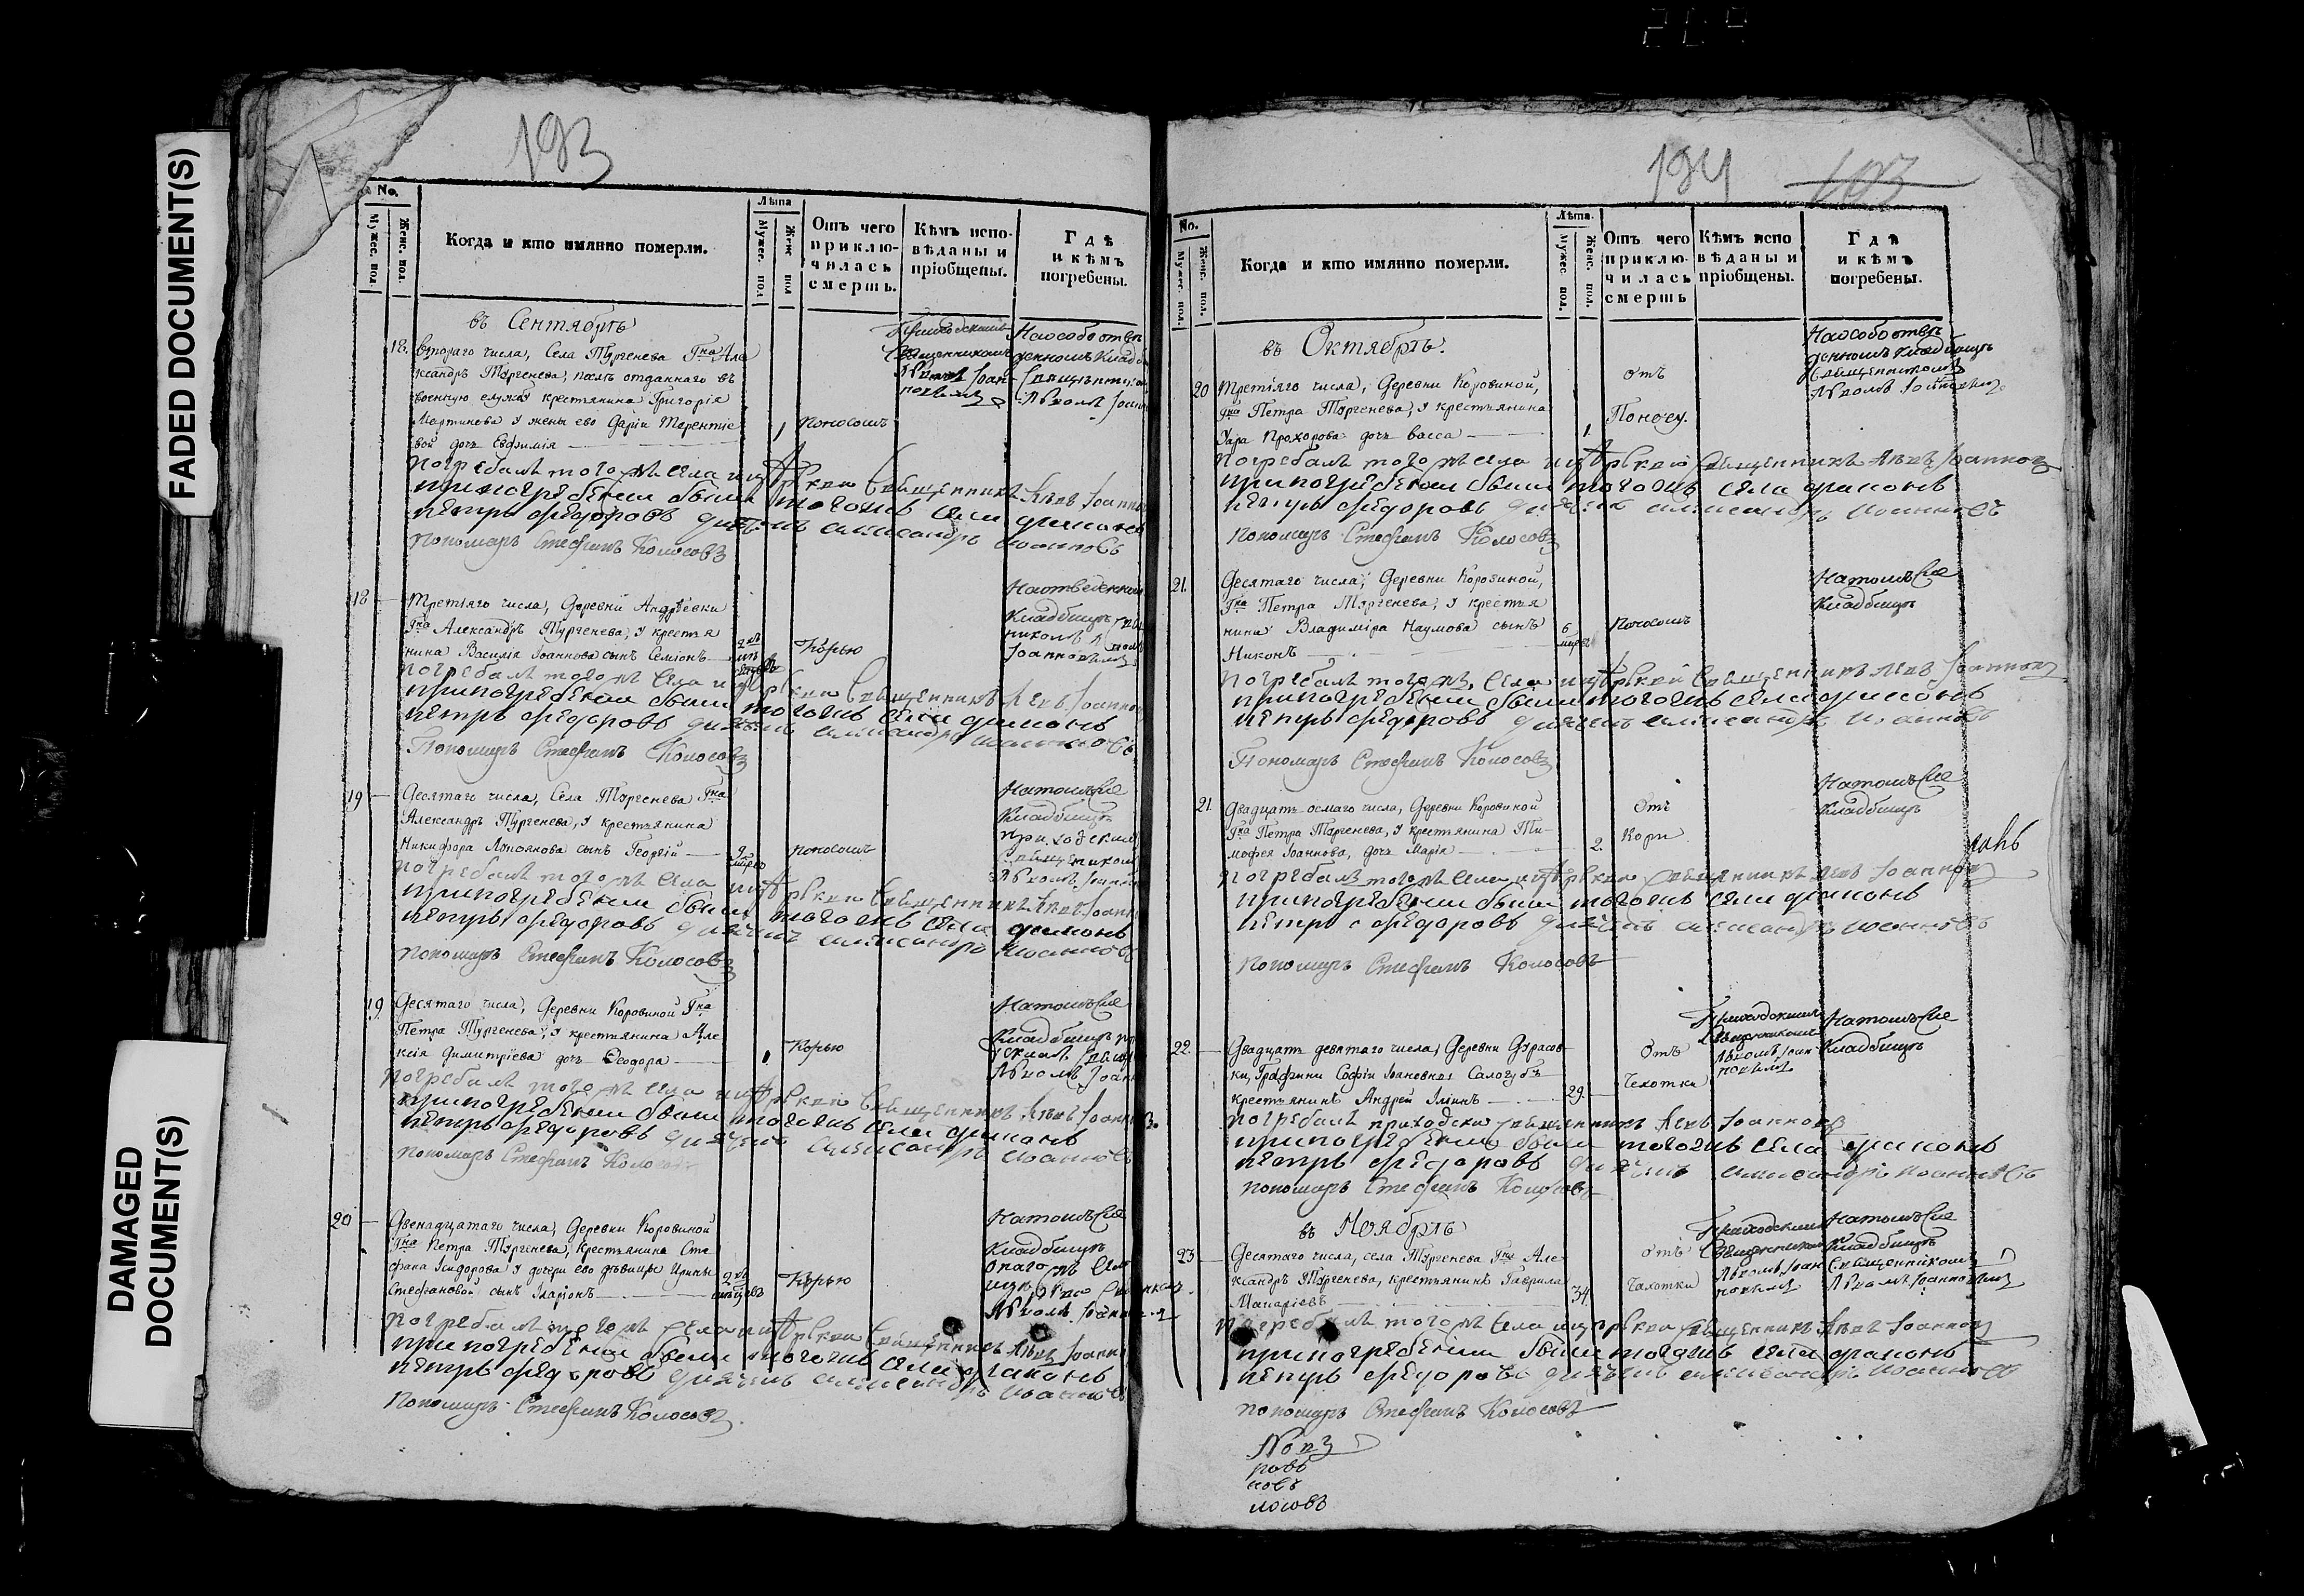 FADED DOCUMENT(S)
DAMAGED
DOCUMENT(S)
193
No.
Мужес. пол.
Женс. пол.
Когда и кто имянно померли.
Лѣта
Мужес. пол
Женс. пол
Отъ чего
приклю-
чилась
смерть.
Кѣмъ испо-
вѣданы и
пріобщены.
Гдѣ
и кѣмъ
погребены.
въ Сентябрѣ
18. Втораго числа, Села Тургенева Гна Але
ксандръ Тургенева, послѣ отданнаго въ
военную службу крестьянина Григорія
Мартинова у жены его Дарьи Терентіе
вой дочь Евфимія
1
поносомъ
Приходскимъ
Священникомъ
Львомъ Іоан-
новымъ
На особо отве
денномъ Кладби
Священником
Львомъ Іоан
Погребалъ того жъ села Іерей Священникъ Левъ Іоаннов
при погребеніи были того жъ села диаконъ
Петръ Федоровъ дьячекъ Александръ Иоанновъ
Пономарь Стефанъ Колосовъ
18 Третіяго числа, Деревни Андреевки
Гна Александръ Тургенева, у крестья
нина Василія Іоаннова сынъ Семіонъ
Корью
На отведенном
Кладбищѣ
Іоанновымъ
Погребалъ того жъ села Священникъ Левъ Іоаннов
при погребеніи были того жъ села диаконъ
Петръ Федоровъ дьячекъ Александръ Иоанновъ
Пономарь Стефанъ Колосовъ
19 Десятаго числа, Села Тургенева Гна
Александръ Тургенева, у крестьянина
Никифора сынъ Георгій
поносомъ
На томъ же
Кладбищѣ
приходским
Священником
Львомъ Іоанн
Погребалъ того жъ села Священникъ Левъ Іоанн
при погребеніи были того жъ села диаконъ
Петръ Федоровъ дьячекъ Александръ Иоанновъ
Пономарь Стефанъ Колосовъ
19. Десятаго числа, Деревни Коровиной Гна
Петра Тургенева, у крестьянина Але
ксія Димитріева дочь Феодора
1
Корью
На томъ же
Кладбищѣ
Львомъ Іоан
Погребалъ того жъ села Священникъ Левъ Іоанн
при погребеніи были того жъ села диаконъ
Петръ Федоровъ дьячекъ Александръ Иоанновъ
Пономарь Стефанъ Колосовъ
20 Двенадцатаго числа, Деревни Коровиной
Гна Петра Тургенева, крестьянина Сте
фана Исидорова у дочери его дѣвицы Ирины
Стефановой сынъ Іларіонъ
Корью
На томъ же
Кладбищѣ
Львомъ Іоанновым
Погребалъ того жъ села Священникъ Левъ Іоанн
при погребеніи были того жъ села диаконъ
Петръ Федоровъ дьячекъ Александръ Иоанновъ
Пономарь Стефанъ Колосовъ.
194
193
No.
Мужес. пол.
Женс. пол.
Когда и кто имянно померли.
Лѣта.
Мужес. пол.
Женс. пол.
Отъ чего
приклю-
чилась
смерть
Кѣмъ испо
вѣданы и
пріобщены.
Гдѣ
и кѣмъ
погребены.
въ Октябрѣ.
20 Третіяго числа, Деревни Коровиной,
Гна Петра Тургенева, у крестьянина
Прохорова дочь Васса
1.
отъ
Поносу.
На особо отве
денномъ Кладбищѣ
Священником
Львомъ Іоанновым
Погребалъ того жъ села Священникъ Левъ Іоаннов
при погребеніи были того жъ села диаконъ
Петръ Федоровъ дьячекъ Александръ Иоанновъ
Пономарь Стефанъ Колосовъ
21. Десятаго числа, Деревни Коровиной,
Гна Петра Тургенева, у крестья
нина Владиміра Наумова сынъ
Никонъ
6
поносомъ
На томъ же
Кладбищѣ
Погребалъ того жъ села Священникъ Левъ Іоаннов
при погребеніи были того жъ села диаконъ
Петръ Федоровъ дьячекъ Александръ Иоанновъ
Пономарь Стефанъ Колосовъ
21. Двадцать осмаго числа, Деревни Коровиной
Гна Петра Тургенева, у крестьянина Ти-
мофея Іоаннова, дочь Марія
2.
Отъ
Кори
На томъ же
Кладбищѣ
Погребалъ того жъ села Священникъ Левъ Іоаннов
при погребеніи были того жъ села диаконъ
Петръ Федоровъ дьячекъ Александръ Иоанновъ
Пономарь Стефанъ Колосовъ
22. Двадцать девятаго числа, Деревни Дурасов-
ки, Графини Софіи Ивановны Салогубъ
крестьянинъ Андрей Ілинъ
29.
Отъ
Чехотки
Приходскимъ
Священникомъ
Львомъ Іоан
новымъ
На томъ же
Кладбищѣ
Погребалъ приходски Священникъ Левъ Іоанновъ
при погребеніи были того жъ села диаконъ
Петръ Федоровъ дьячекъ Александръ Иоанновъ
Пономарь Стефанъ Колосовъ
въ Ноябрѣ
23 Десятаго числа, села Тургенева Гна Але
ксандръ Тургенева, крестьянинъ Гаврила
Макаріевъ
34.
отъ
Чахотки
Приходским
Священником
Львомъ Іоан
новымъ
На томъ же
Кладбищѣ
Священникомъ
Львомъ Іоанновым
Погребалъ того жъ села Священникъ Левъ Іоаннов
при погребеніи были того жъ села диаконъ
Петръ Федоровъ дьячекъ Александръ Иоанновъ
Пономарь Стефанъ Колосовъ
ровъ
новъ
лосовъ